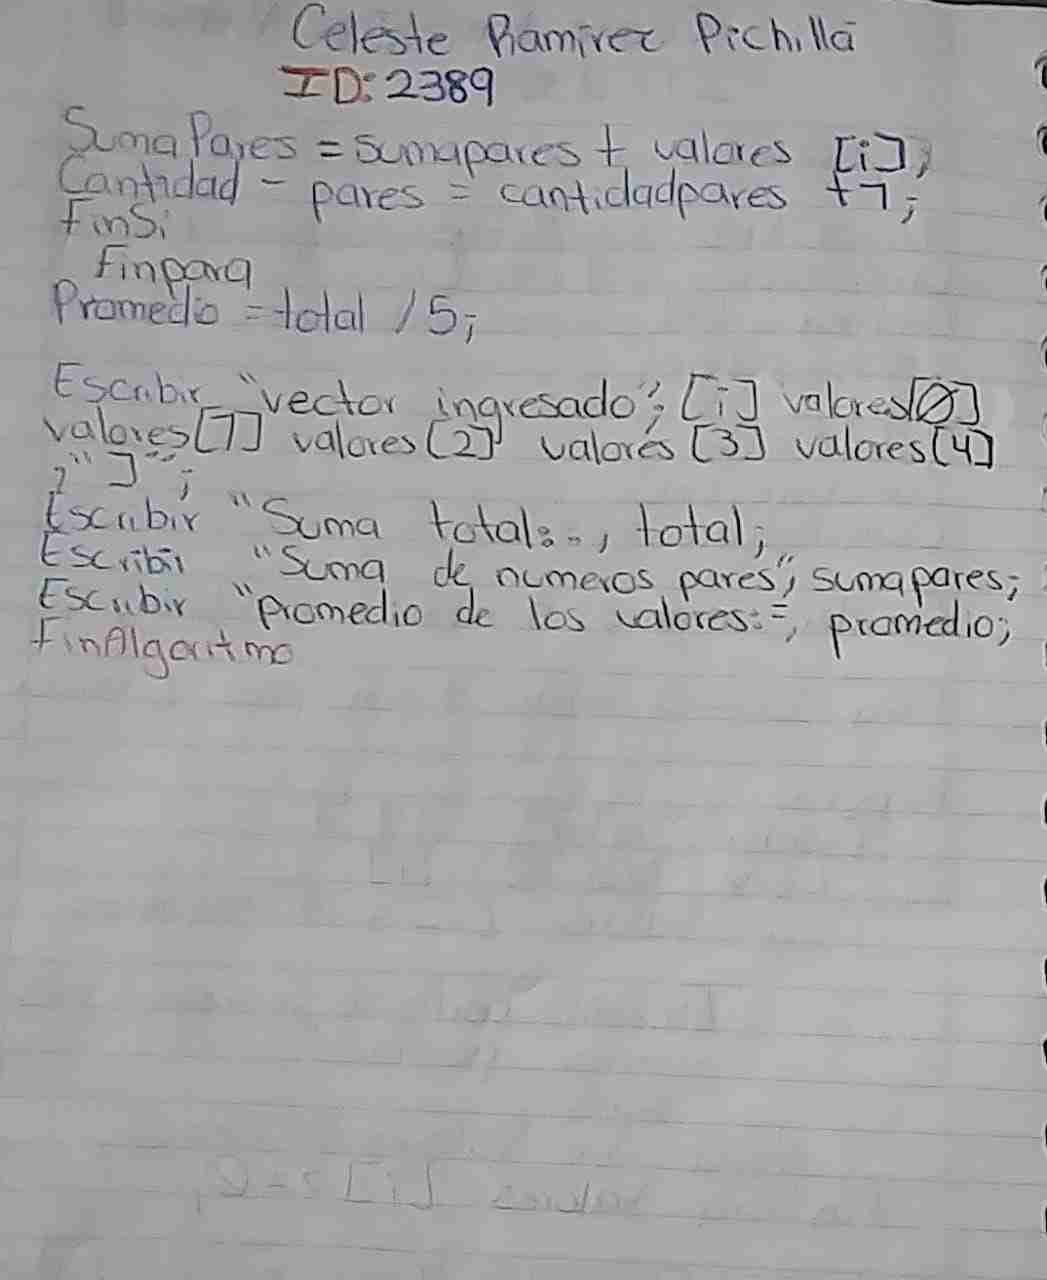 Celeste Ramirez Pichillá
ID: 2389
SumaPares = sumapares + valores [i];
Cantidad - pares = cantidadpares +1;
FinSi
Finpara
Promedio = total / 5;
Escribir "vector ingresado"; [i] valores[0]
valores[1] valores[2] valores [3] valores[4]
," ] ";
Escribir "Suma total:", total;
Escribir "Suma de numeros pares", sumapares;
Escribir "promedio de los valores:", promedio;
FinAlgoritmo